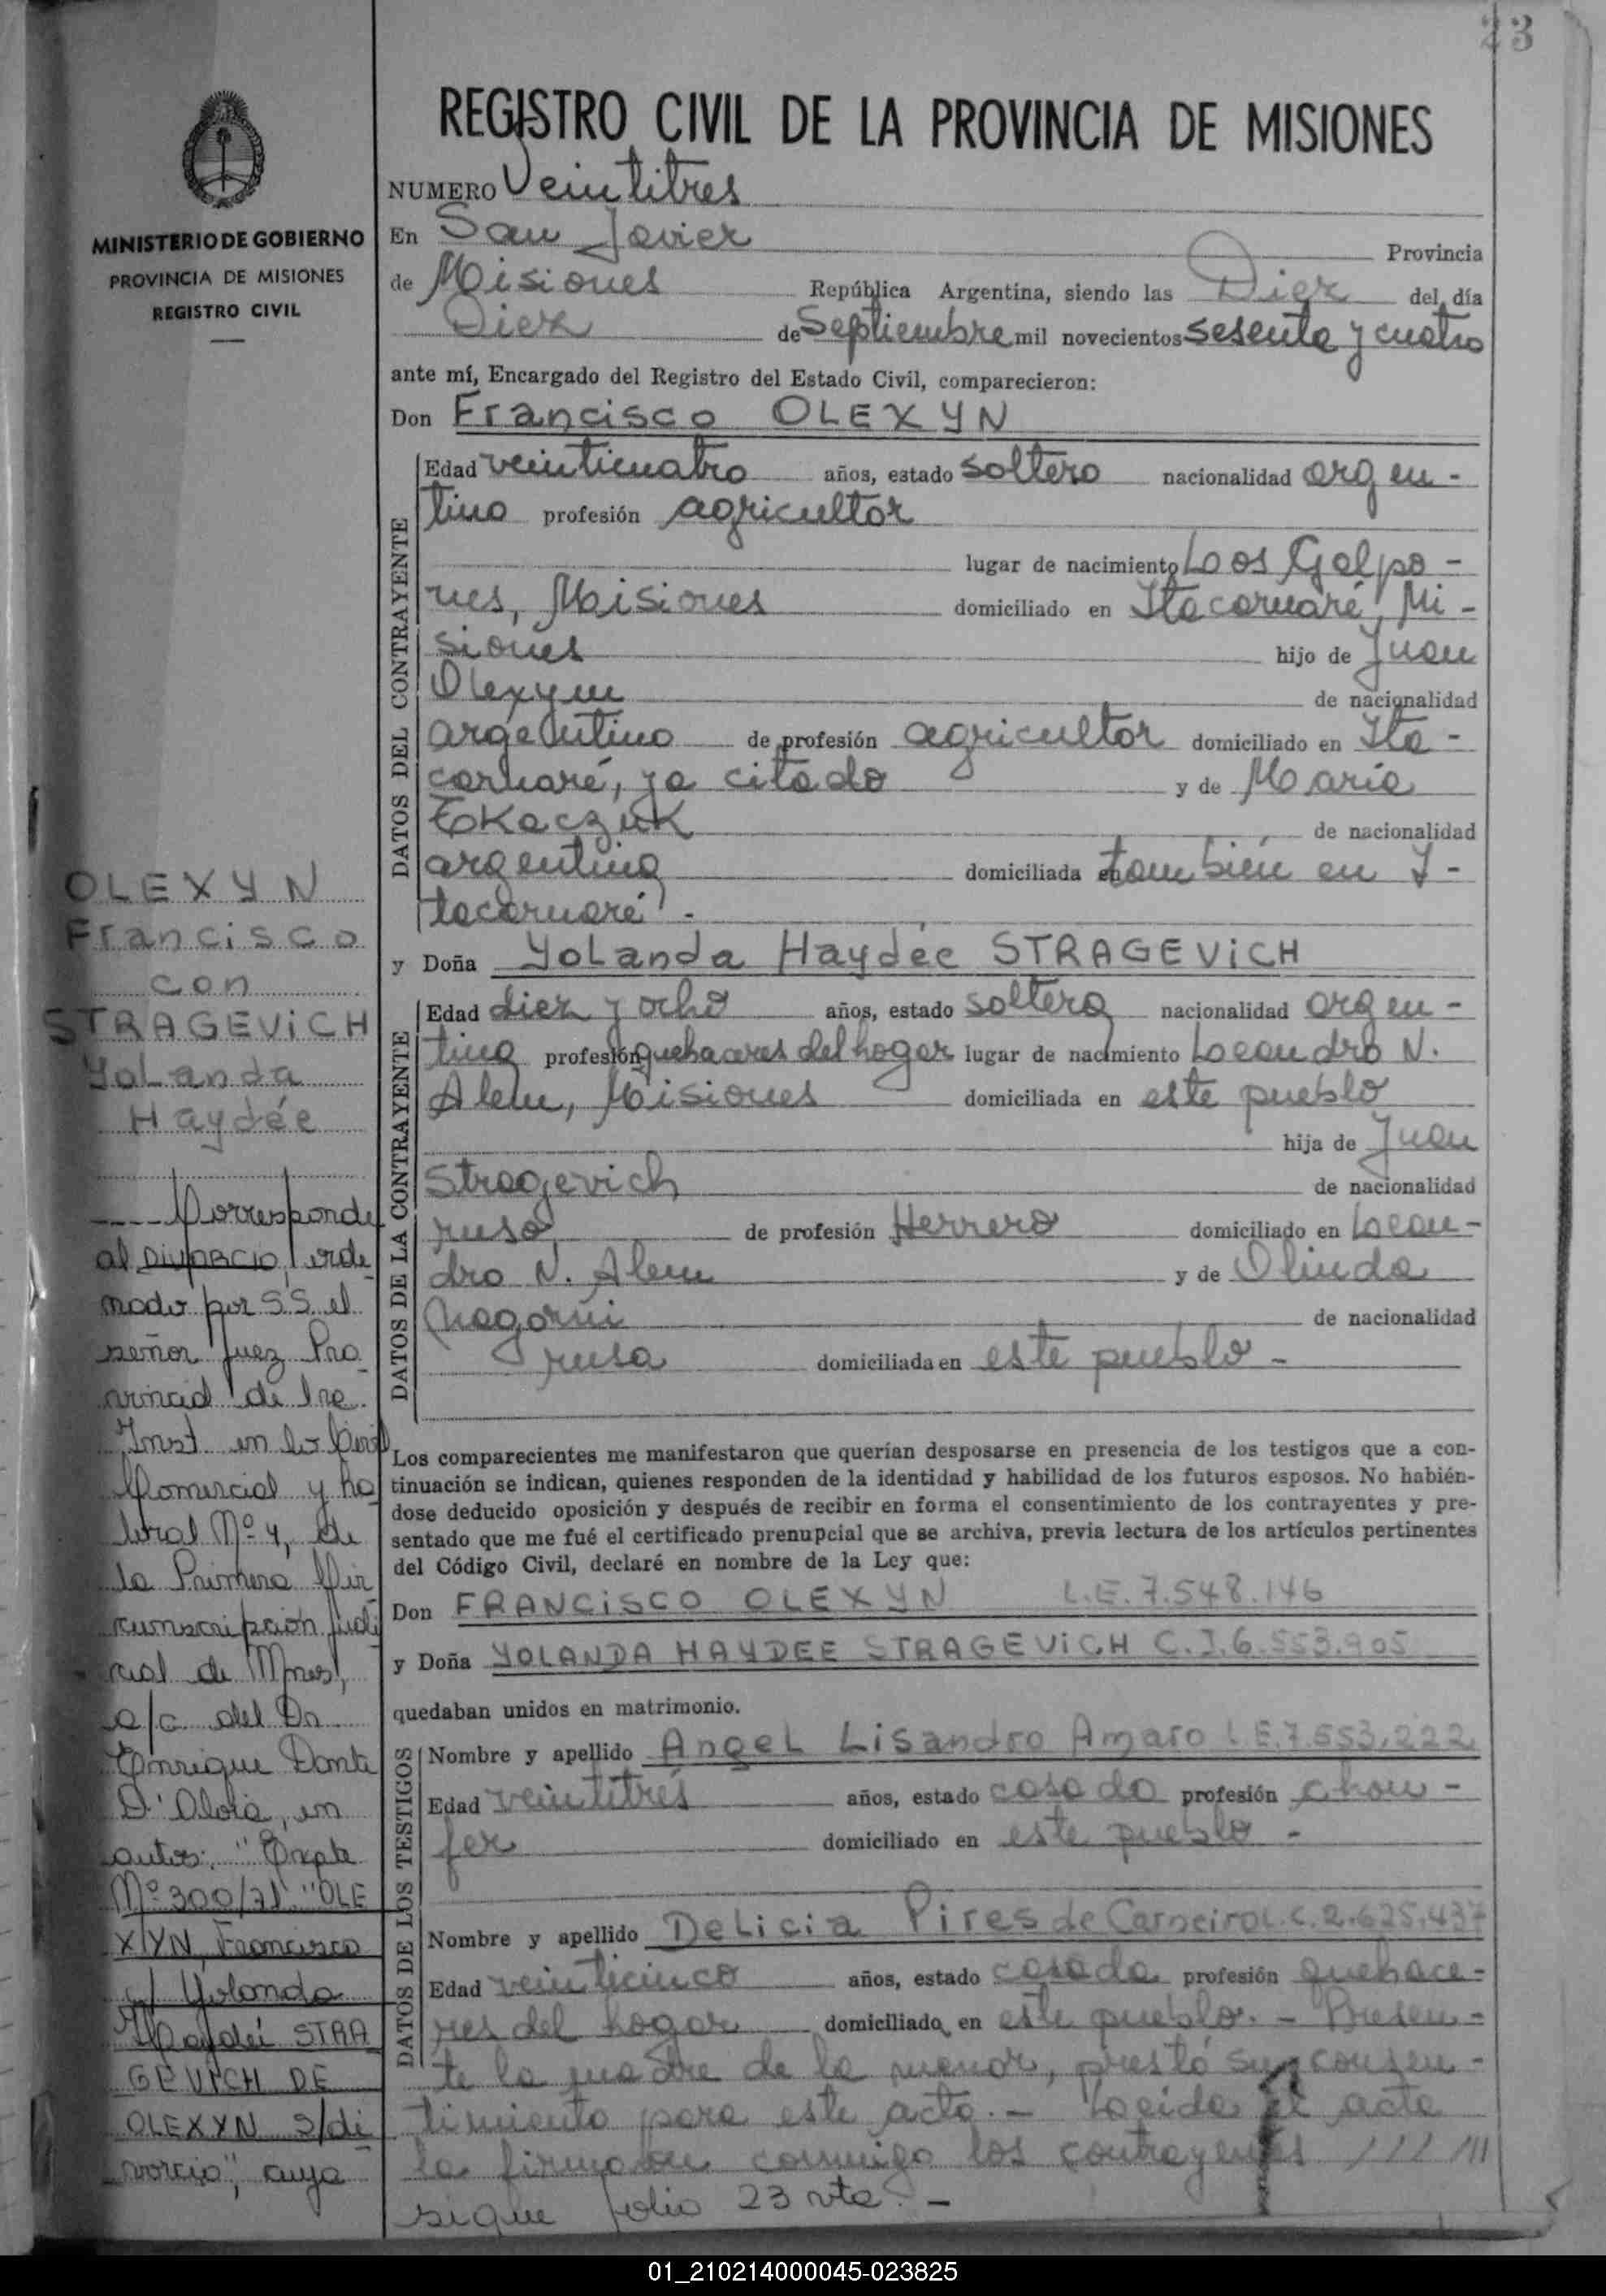 23
REGISTRO CIVIL DE LA PROVINCIA DE MISIONES
MINISTERIO DE GOBIERNO
PROVINCIA DE MISIONES
REGISTRO CIVIL
NUMERO Veintitres
En San Javier Provincia
de Misiones República Argentina, siendo las Diez del día
Diez de Septiembre mil novecientos sesenta y cuatro
ante mí, Encargado del Registro del Estado Civil, comparecieron:
Don Francisco OLEXYN
DATOS DEL CONTRAYENTE
Edad veinticuatro años, estado soltero nacionalidad argen-
tino profesión agricultor
lugar de nacimiento Los Galpo-
nes, Misiones domiciliado en Itacaruaré, Mi-
siones hijo de Juan
Olexyn de nacionalidad
argentino de profesión agricultor domiciliado en Ita-
caruaré, ya citado y de María
Tkaczuk de nacionalidad
argentina domiciliada en también en I-
tacaruaré.-
y Doña Yolanda Haydée STRAGEViCH
DATOS DE LA CONTRAYENTE
Edad diez y ocho años, estado soltera nacionalidad argen-
tina profesión quehaceres del hogar lugar de nacimiento Leandro N.
Alem, Misiones domiciliada en este pueblo
hija de Juan
Stragevich de nacionalidad
ruso de profesión Herrero domiciliado en Lean-
dro N. Alem y de Olinda
Nagorni de nacionalidad
rusa domiciliada en este pueblo-
Los comparecientes me manifestaron que querían desposarse en presencia de los testigos que a con-
tinuación se indican, quienes responden de la identidad y habilidad de los futuros esposos. No habién-
dose deducido oposición y después de recibir en forma el consentimiento de los contrayentes y pre-
sentado que me fué el certificado prenupcial que se archiva, previa lectura de los artículos pertinentes
del Código Civil, declaré en nombre de la Ley que:
Don FRANCiSCO OLEXYN L.E.7.548.146
y Doña YOLANDA HAYDEE STRAGEViCH C.I.6.553.905
quedaban unidos en matrimonio.
DATOS DE LOS TESTIGOS
Nombre y apellido Angel Lisandro Amaro L.E.7.553.222
Edad veintitrés años, estado casado profesión chou-
fer domiciliado en este pueblo-
Nombre y apellido Delicia Pires de Carneiro L.C.2.625.437
Edad veinticinco años, estado casada profesión quehace-
res del hogar domiciliado en este pueblo.- Presen-
te la madre de la menor, prestó su consen-
timiento para este acto.- Leida el acta
la firmaron conmigo los contrayentes //////
sigue folio 23 vta.-
OLEXYN
Francisco
con
STRAGEViCH
Yolanda
Haydée
---- Corresponde
al DIVORCIO, orde
nado por S.S. el
señor Juez Pro
vincial de 1ra.
Inst en lo Civil
Comercial y La
boral Nº 4, de
la Primera Cir
cunscripción Judi
cial de Mnes,
a/c del Dr
Enrique Dante
D'Aloia, en
autos: "Expte
Nº 300/71 "OLE
XYN, Francisco
c/ Yolanda
Haydeé STRA
GEVICH DE
OLEXYN s/di
vorcio", cuya
01_210214000045-023825